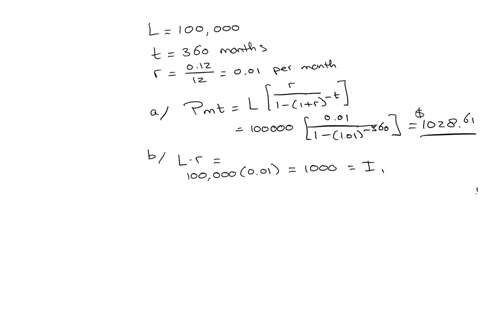 L = 100,000
t = 360 months
r = 0.12/12 = 0.01 per month
a) Pmt = L [r/(1-(1+r)^-t)]
= 100000 [0.01/(1-(1.01)^-360)] = $1028.61
b) L·r =
100,000(0.01) = 1000 = I,